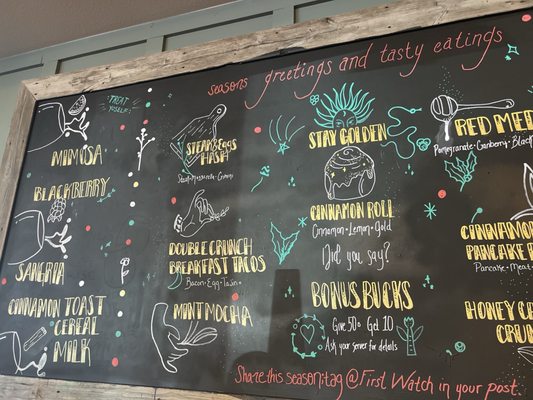 seasons greetings and tasty eatings
TREAT
yo'SELF!
MIMOSA
BLACKBERRY
SANGRIA
CINNAMON TOAST
CEREAL
MILK
STEAK & EGGS
HASH
DOUBLE CRUNCH
BREAKFAST TACOS
Bacon · Egg · Tajin
MINT MOCHA
STAY GOLDEN
CINNAMON ROLL
Cinnamon · Lemon · Gold
Did you say?
BONUS BUCKS
Give 50 Get 10
Ask your server for details
RED MED
Pomegranate · Cranberry · Black
CINNAMON
PANCAKE
Pancake · Meat
HONEY C
CRUN
Share this season: tag @First Watch in your post.